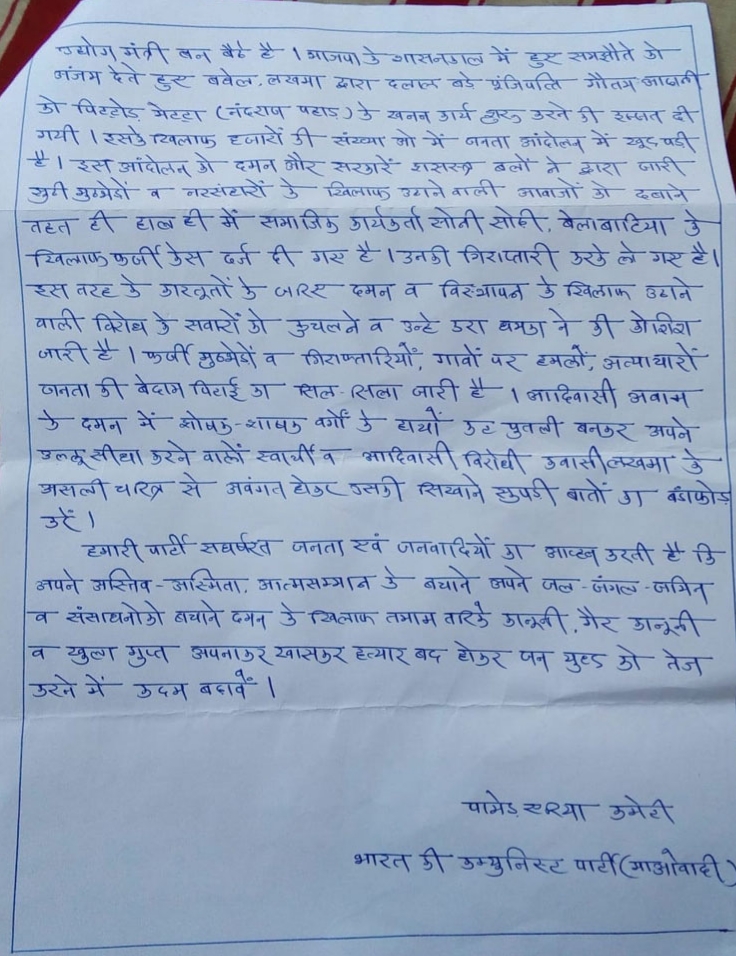 उद्योग मंत्री बन बैठे है । भाजपा के शासनकाल में हुए समझौते को
अंजाम देते हुए बघेल, लखमा द्वारा दलाल बडे पूंजिपति गौतम अडानी
को पिटटोड मेटटा (नंदराज पहाड) के खनन कार्य शुरू करने की इजाजत दी
गयी । इसके खिलाफ हजारों की संख्या ओ में जनता आंदोलन में खुद पडी
है । इस आंदोलन को दमन और सरकारें शसस्त्र बलों ने द्वारा जारी
झुटी मुठभेडों व नरसंहारों के खिलाफ उठाने वाली आवाजों को दबाने
तहत ही हाल ही में समाजिक कार्यकर्ता सोनी सोढी, बेलाबाटिया के
खिलाफ फर्जी केस दर्ज दी गए है । उनकी गिराप्तारी करके ले गए है ।
इस तरह के कारतूतों के जरिए दमन व विस्थापन के खिलाफ उठाने
वाली विरोध के सवारों को कुचलने व उन्हे डरा धमका ने की कोशिश
जारी है । फर्जी मुठभेडों व गिराफ्तारियों, गावों पर हमलों, अत्याचारों
जनता की बेदाम पिटाई का सिल-सिला जारी है । आदिवासी अवाम
के दमन में शोषक-शाषक वर्गों के हाथों कट पुतली बनकर अपने
उल्लू सीधा करने वालों स्वार्थी व आदिवासी विरोधी कवासी लखमा के
असली चरित्र से अवंगत होकर उसकी सिखाने सुपडी बातों का बंडाफोड
करें ।
हमारी पार्टी सघर्षरत जनता एवं जनवादियों का आव्हन करती है कि
अपने अस्तिव-अस्मिता, आत्मसम्मान के बचाने अपने जल-जंगल-जमिन
व संसाधनोको बचाने दमन के खिलाफ तमाम तरिके कानूनी, गैर कानूनी
व खुला गुप्त अपनाकर खासकर हत्यार बद होकर जन युध्द को तेज
करने में कदम बढावें ।
पामेड एरिया कमेटी
भारत की कम्युनिस्ट पार्टी (माओवादी)